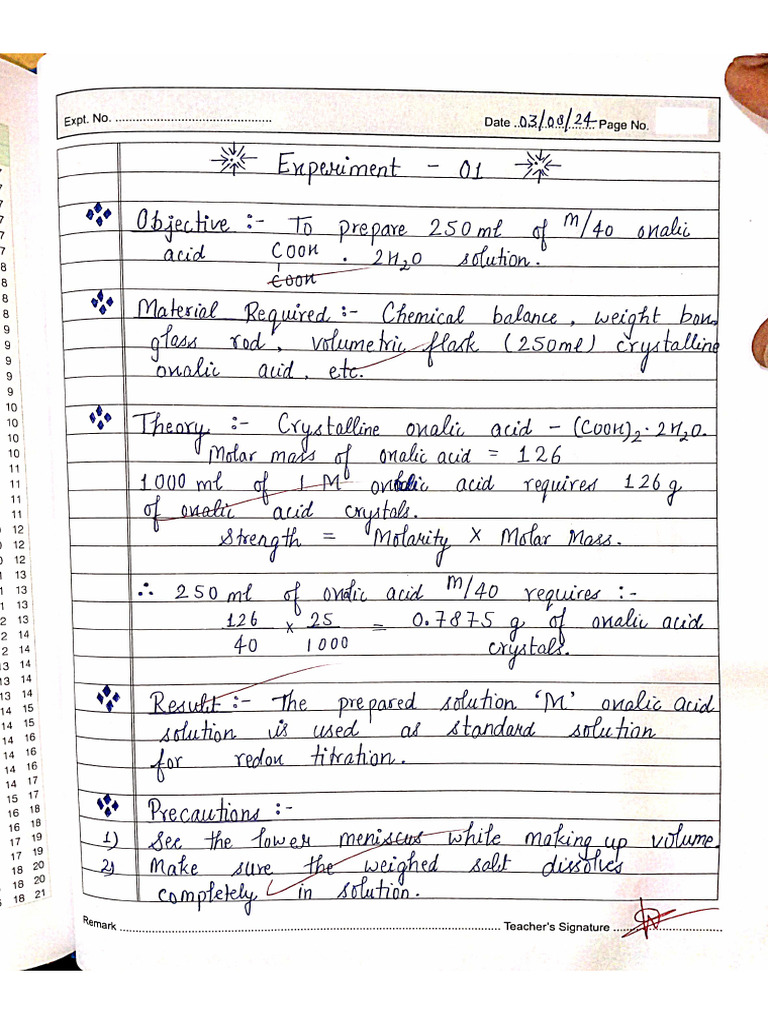 Expt. No. ............ Date 03/08/24 Page No.
Experiment - 01
Objective :- To prepare 250 ml of M/40 oxalic
acid COOH . 2H₂O solution.
COOH
Material Required :- Chemical balance, weight box,
glass rod, volumetric flask (250ml) crystalline
oxalic acid, etc.
Theory :- Crystalline oxalic acid - (COOH)₂·2H₂O.
Molar mass of oxalic acid = 126
1000 ml of 1 M oxalic acid requires 126 g
of oxalic acid crystals.
Strength = Molarity × Molar Mass.
∴ 250 ml of oxalic acid M/40 requires :-
126/40 × 25/1000 = 0.7875 g of oxalic acid
crystals.
Result :- The prepared solution 'M' oxalic acid
solution is used as standard solution
for redox titration.
Precautions :-
1) See the lower meniscus while making up volume.
2) Make sure the weighed salt dissolves
completely in solution.
Remark ............ Teacher's Signature ............